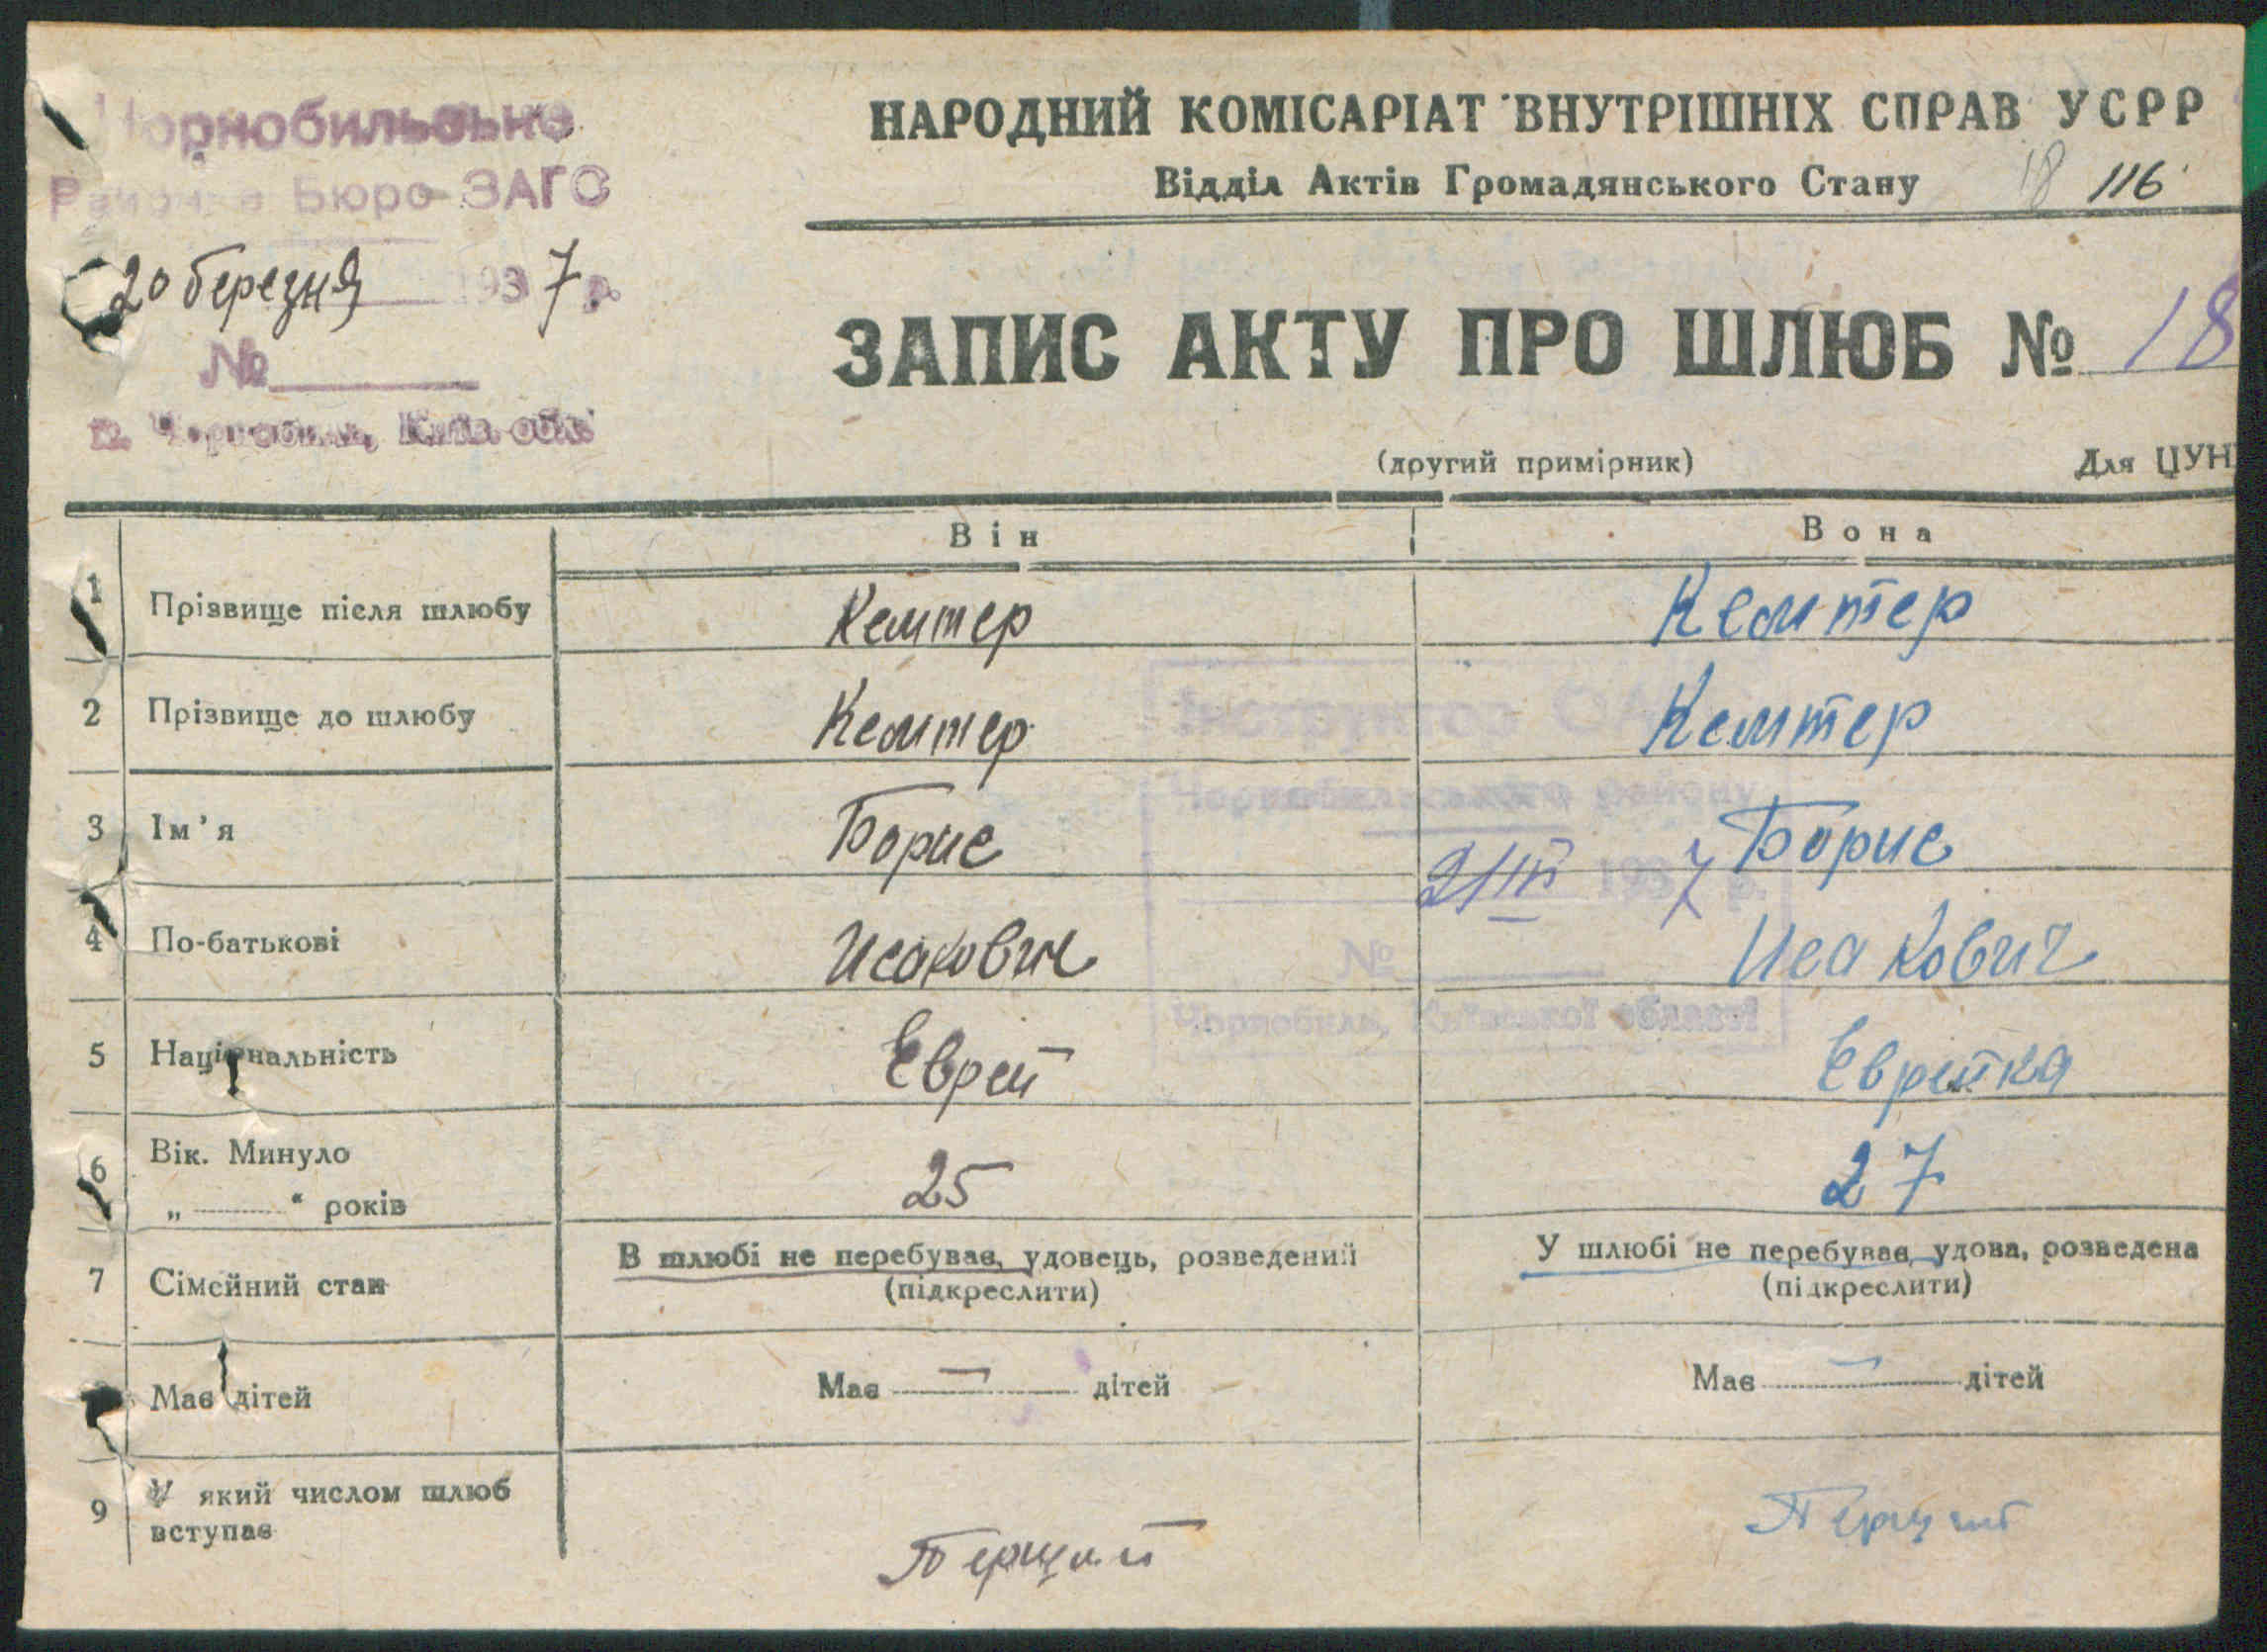 Чорнобильське
Районне Бюро ЗАГС
20 березня 1937 р.
№
м. Чорнобиль, Київ. обл.
НАРОДНИЙ КОМІСАРІАТ ВНУТРІШНІХ СПРАВ УСРР
Відділ Актів Громадянського Стану 18 116
ЗАПИС АКТУ ПРО ШЛЮБ № 18
(другий примірник) Для ЦУН
Він Вона
1 Прізвище після шлюбу Кемтер Кемтер
2 Прізвище до шлюбу Кемтер Кемтер
3 Ім’я Борис Борис
4 По-батькові Исакович Исакович
5 Національність Еврей Еврейка
6 Вік. Минуло
„ “ років 25 27
7 Сімейний стан В шлюбі не перебував, удовець, розведений У шлюбі не перебував, удова, розведена
(підкреслити) (підкреслити)
Має дітей Має — дітей Має — дітей
9 У який числом шлюб
вступає Перший Перший
Інструктор
Чорнобильського району
21 III 1937 р.
№
Чорнобиль, Київської області